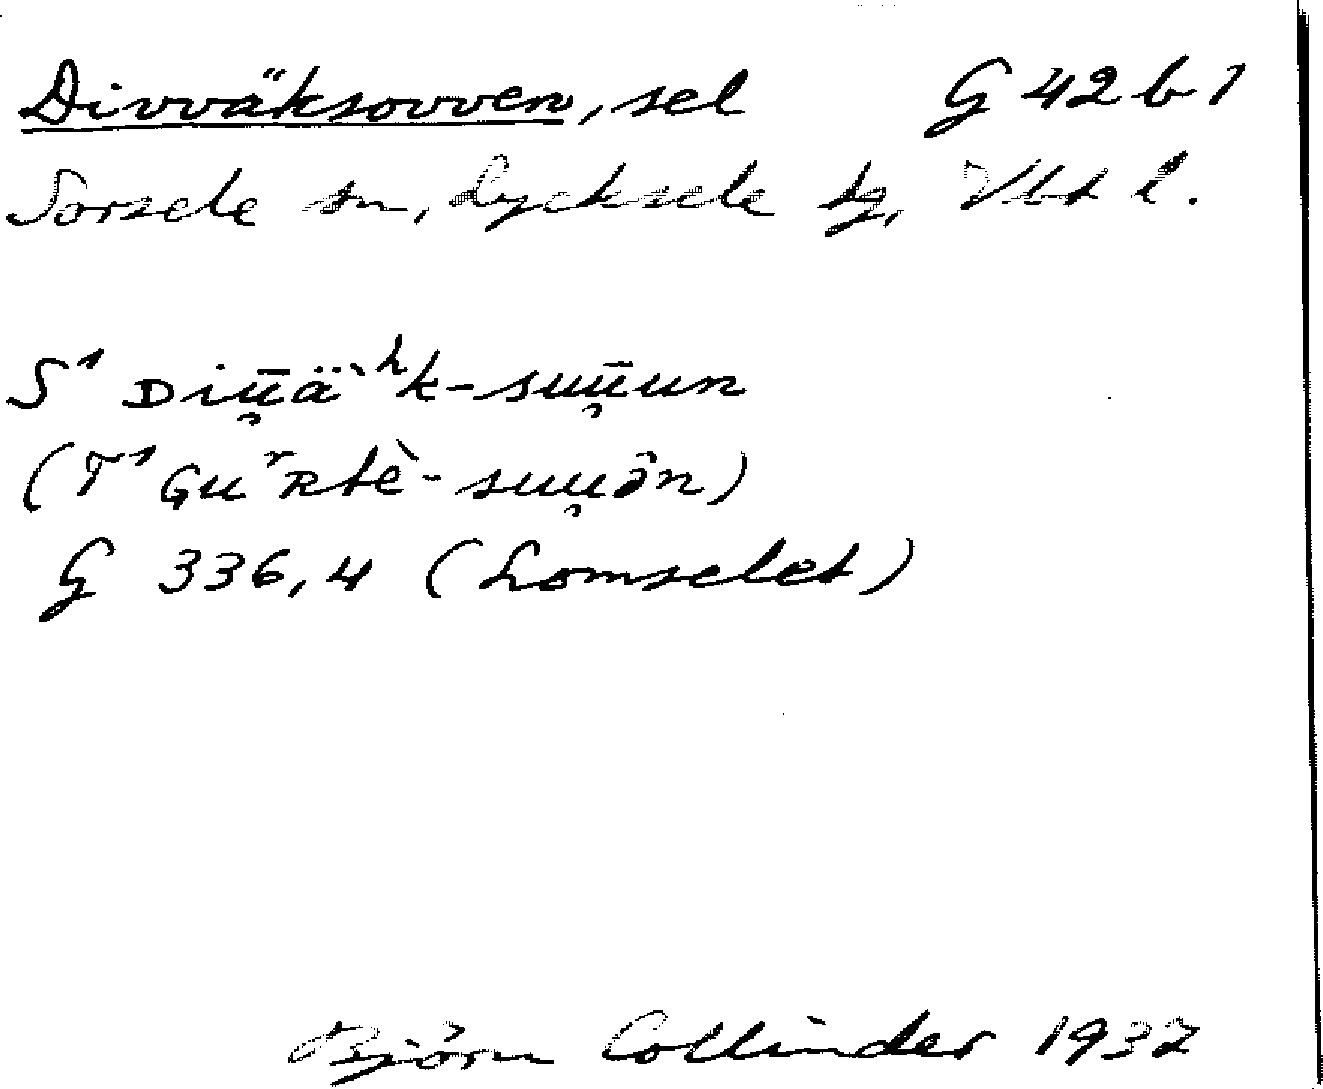 Divväksovven, sel G 42 b 1
Sorsele sn, Lycksele tg, Vbt l.
S¹ Diū̯ä̀ʰk-suū̯un
(T¹ Guʳʀtè-suu̯ôn)
G 336,4 (Lomselet)
Björn Collinder 1937